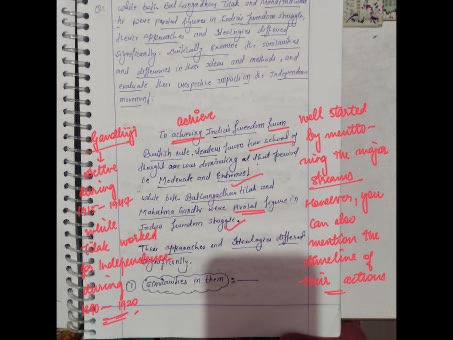 Q1 While both Bal Gangadhar Tilak and Mahatma Gandhi
were pivotal figures in India's freedom struggle,
their approaches and Ideologies differed
significantly. Critically Examine the similarities
and differences in their ideas and methods, and
evaluate their respective impact on the Independence
movement.
achieve
To achieving India's freedom from
British rule, leaders from two school of
thought was dominating at that period
be Moderate and Extremist
while both Bal Gangadhar tilak and
Mahatma Gandhi were Pivotal figure in
Indian freedom struggle.
Their approaches and Ideologies differed
significantly.
① Similarities in them :-
Gandhiji
active
during
1915-1947
while
Tilak worked
for Independence
during
1890-1920
well started
by mentio-
ning the major
streams
However, you
can also
mention the
timeline of
their actions